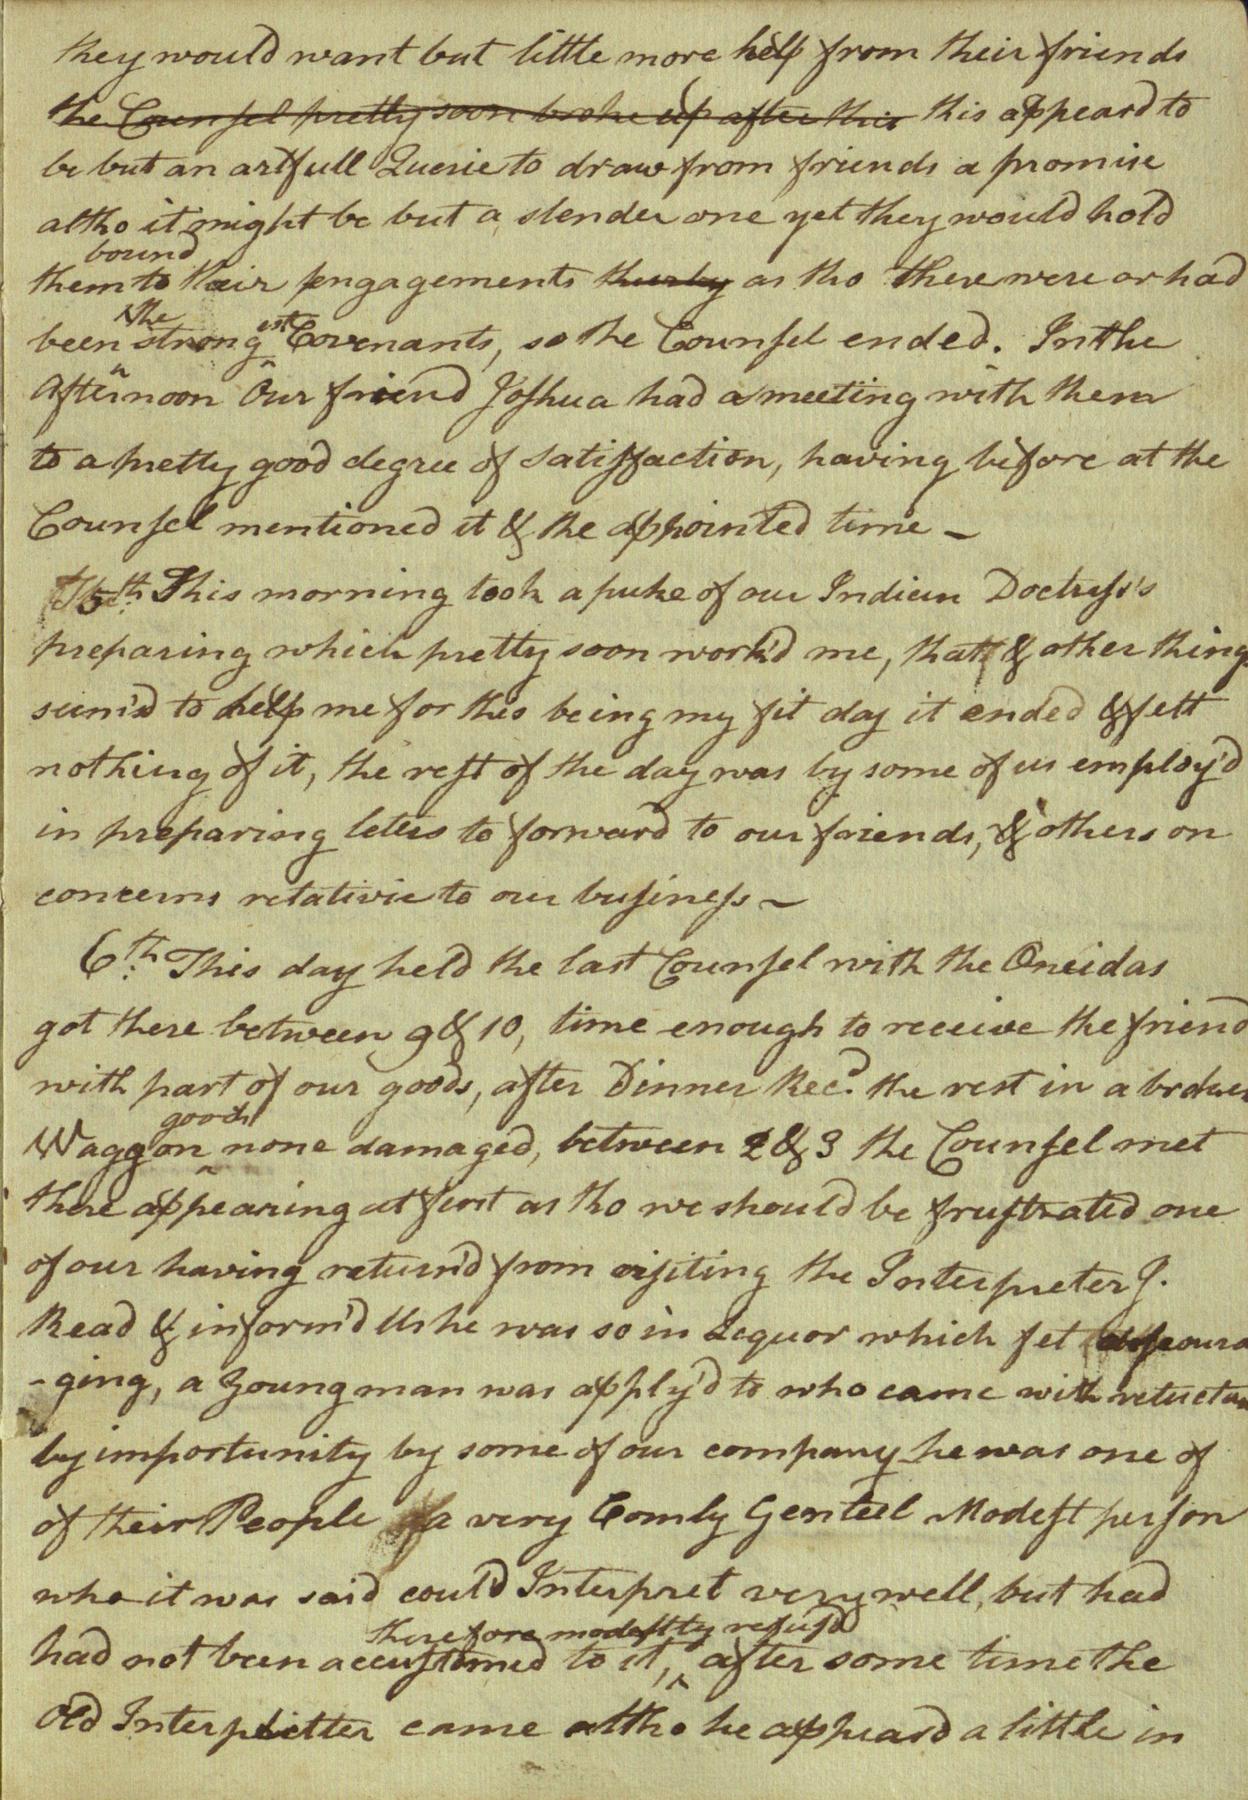 they would want but little more help from their friends
the Counsel pretty soon broke up after this this appeard to
be but an artfull Querie to draw from friends a promise
altho it might be but a slender one yet they would hold
bound
them to their engagements thereby as tho there were or had
the est
been strong Covenants, so the Counsel ended. In the
Afternoon Our friend Joshua had a meeting with them
to a pretty good degree of Satisfaction, having before at the
Counsel mentioned it & the appointed time –
5th This morning took a puke of our Indian Doctress's
preparing which pretty soon work'd me, that & other things
seem'd to help me for this being my fit day it ended & felt
nothing of it, the rest of the day was by some of us employ'd
in preparing leters to forward to our friends, & others on
concerns relative to our business –
6th This day held the last Counsel with the Oneidas
got there between 9 & 10, time enough to receive the friend
with part of our goods, after Dinner Rec.d the rest in a broken
goods
Waggon none damaged, between 2 & 3 the Counsel met
there appearing at first as tho we should be frustrated one
of our having return'd from visiting the Interpreter J.
Read & inform'd Us he was so in Lequor which felt discoura
-ging, a Young man was apply'd to who came with reluctan
by importunity by some of our company he was one of
of their People a very Comly Genteel Modest person
who it was said could Interpret very well, but had
therefore modestly refus'd
had not been accustomed to it, after some time the
Old Interpretter came altho he appeard a little in